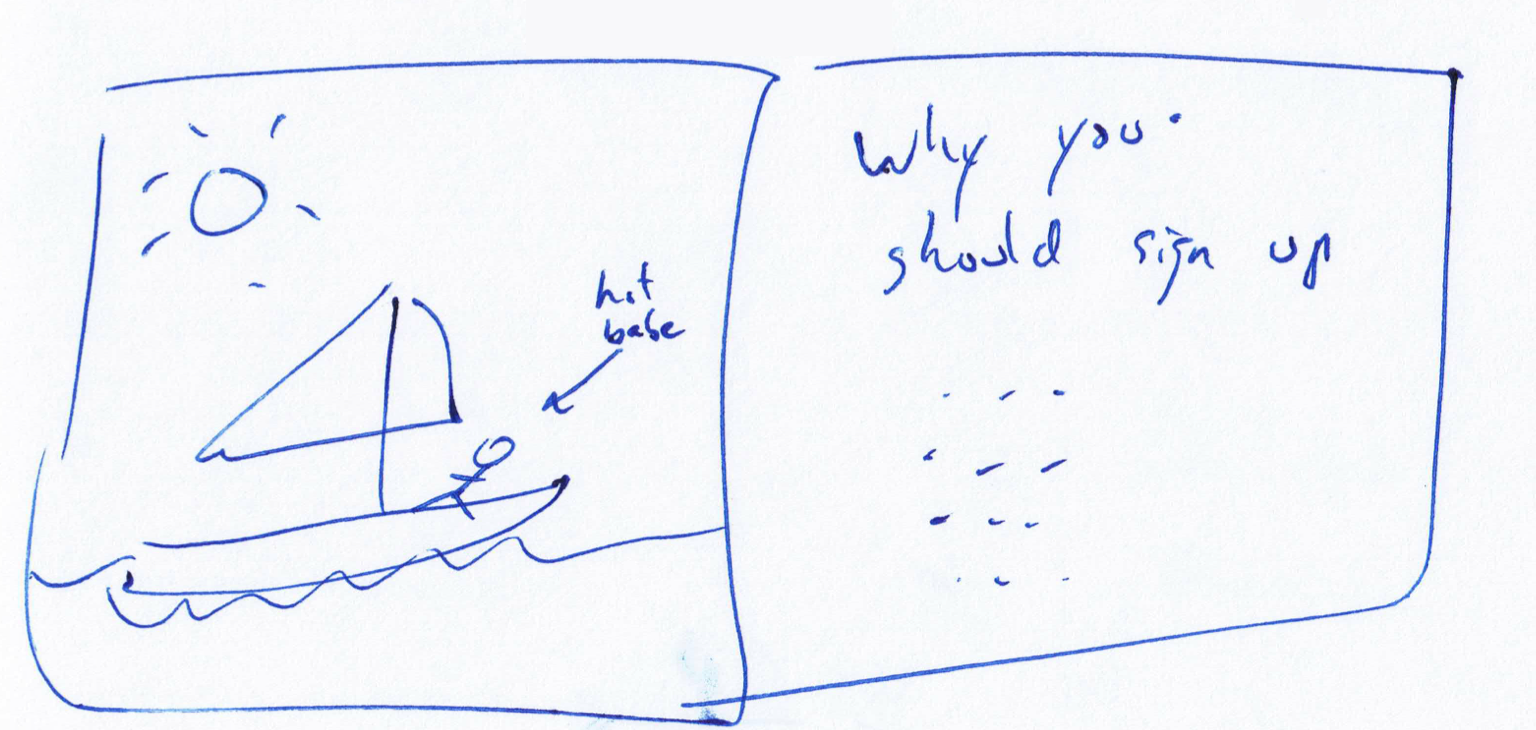 hot
babe
Why you
should sign up